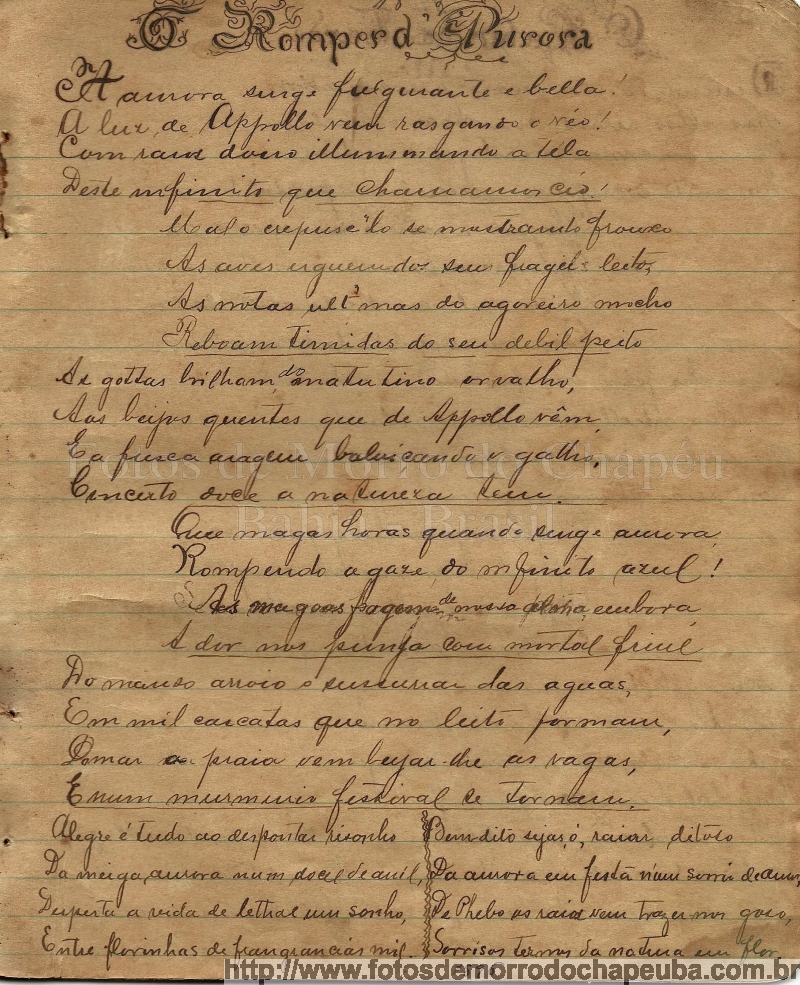 O Romper d'Aurora
A aurora surge fulgurante e bella!
A luz de Appollo vem rasgando o véo!
Com raios doiro illuminando a tela
Deste infinito que chamamos céo!
Mal o crepusc'lo se mostrando frouxo
As aves erguem dos seus frageis leitos,
As notas ult'mas do agoreiro mocho
Reboam timidas do seu debil peito
As gottas brilham, do matutino orvalho,
Aos beijos quentes que de Appollo vêm,
E a fresca aragem baloicando o galho,
Concerto doce a natureza tem.
Que magas horas quando surge aurora,
Rompendo a gaze do infinito azul!
As magoas fogem de nossa alma, embora
A dor nos punja com mortal
Do manso arroio o sussurrar das aguas,
Em mil cascatas que no leito formam,
Do mar a praia vem beijar-lhe as vagas,
E num murmurio festival se tornam.
Alegre é tudo ao despontar risonho
Da meiga aurora num docel de anil,
Desperta a vida de lethal um sonho,
Entre florinhas de frangrancias mil.
Bemdito sejas, ó, raiar ditoso
Da aurora em festa n'um sorrir de amor,
De Phebo os raios vem trazer nos goso,
Sorrisos ternos da natura em flor
Fotos de Morro do Chapéu
Bahia Brasil
http://www.fotosdemorrodochapeuba.com.br